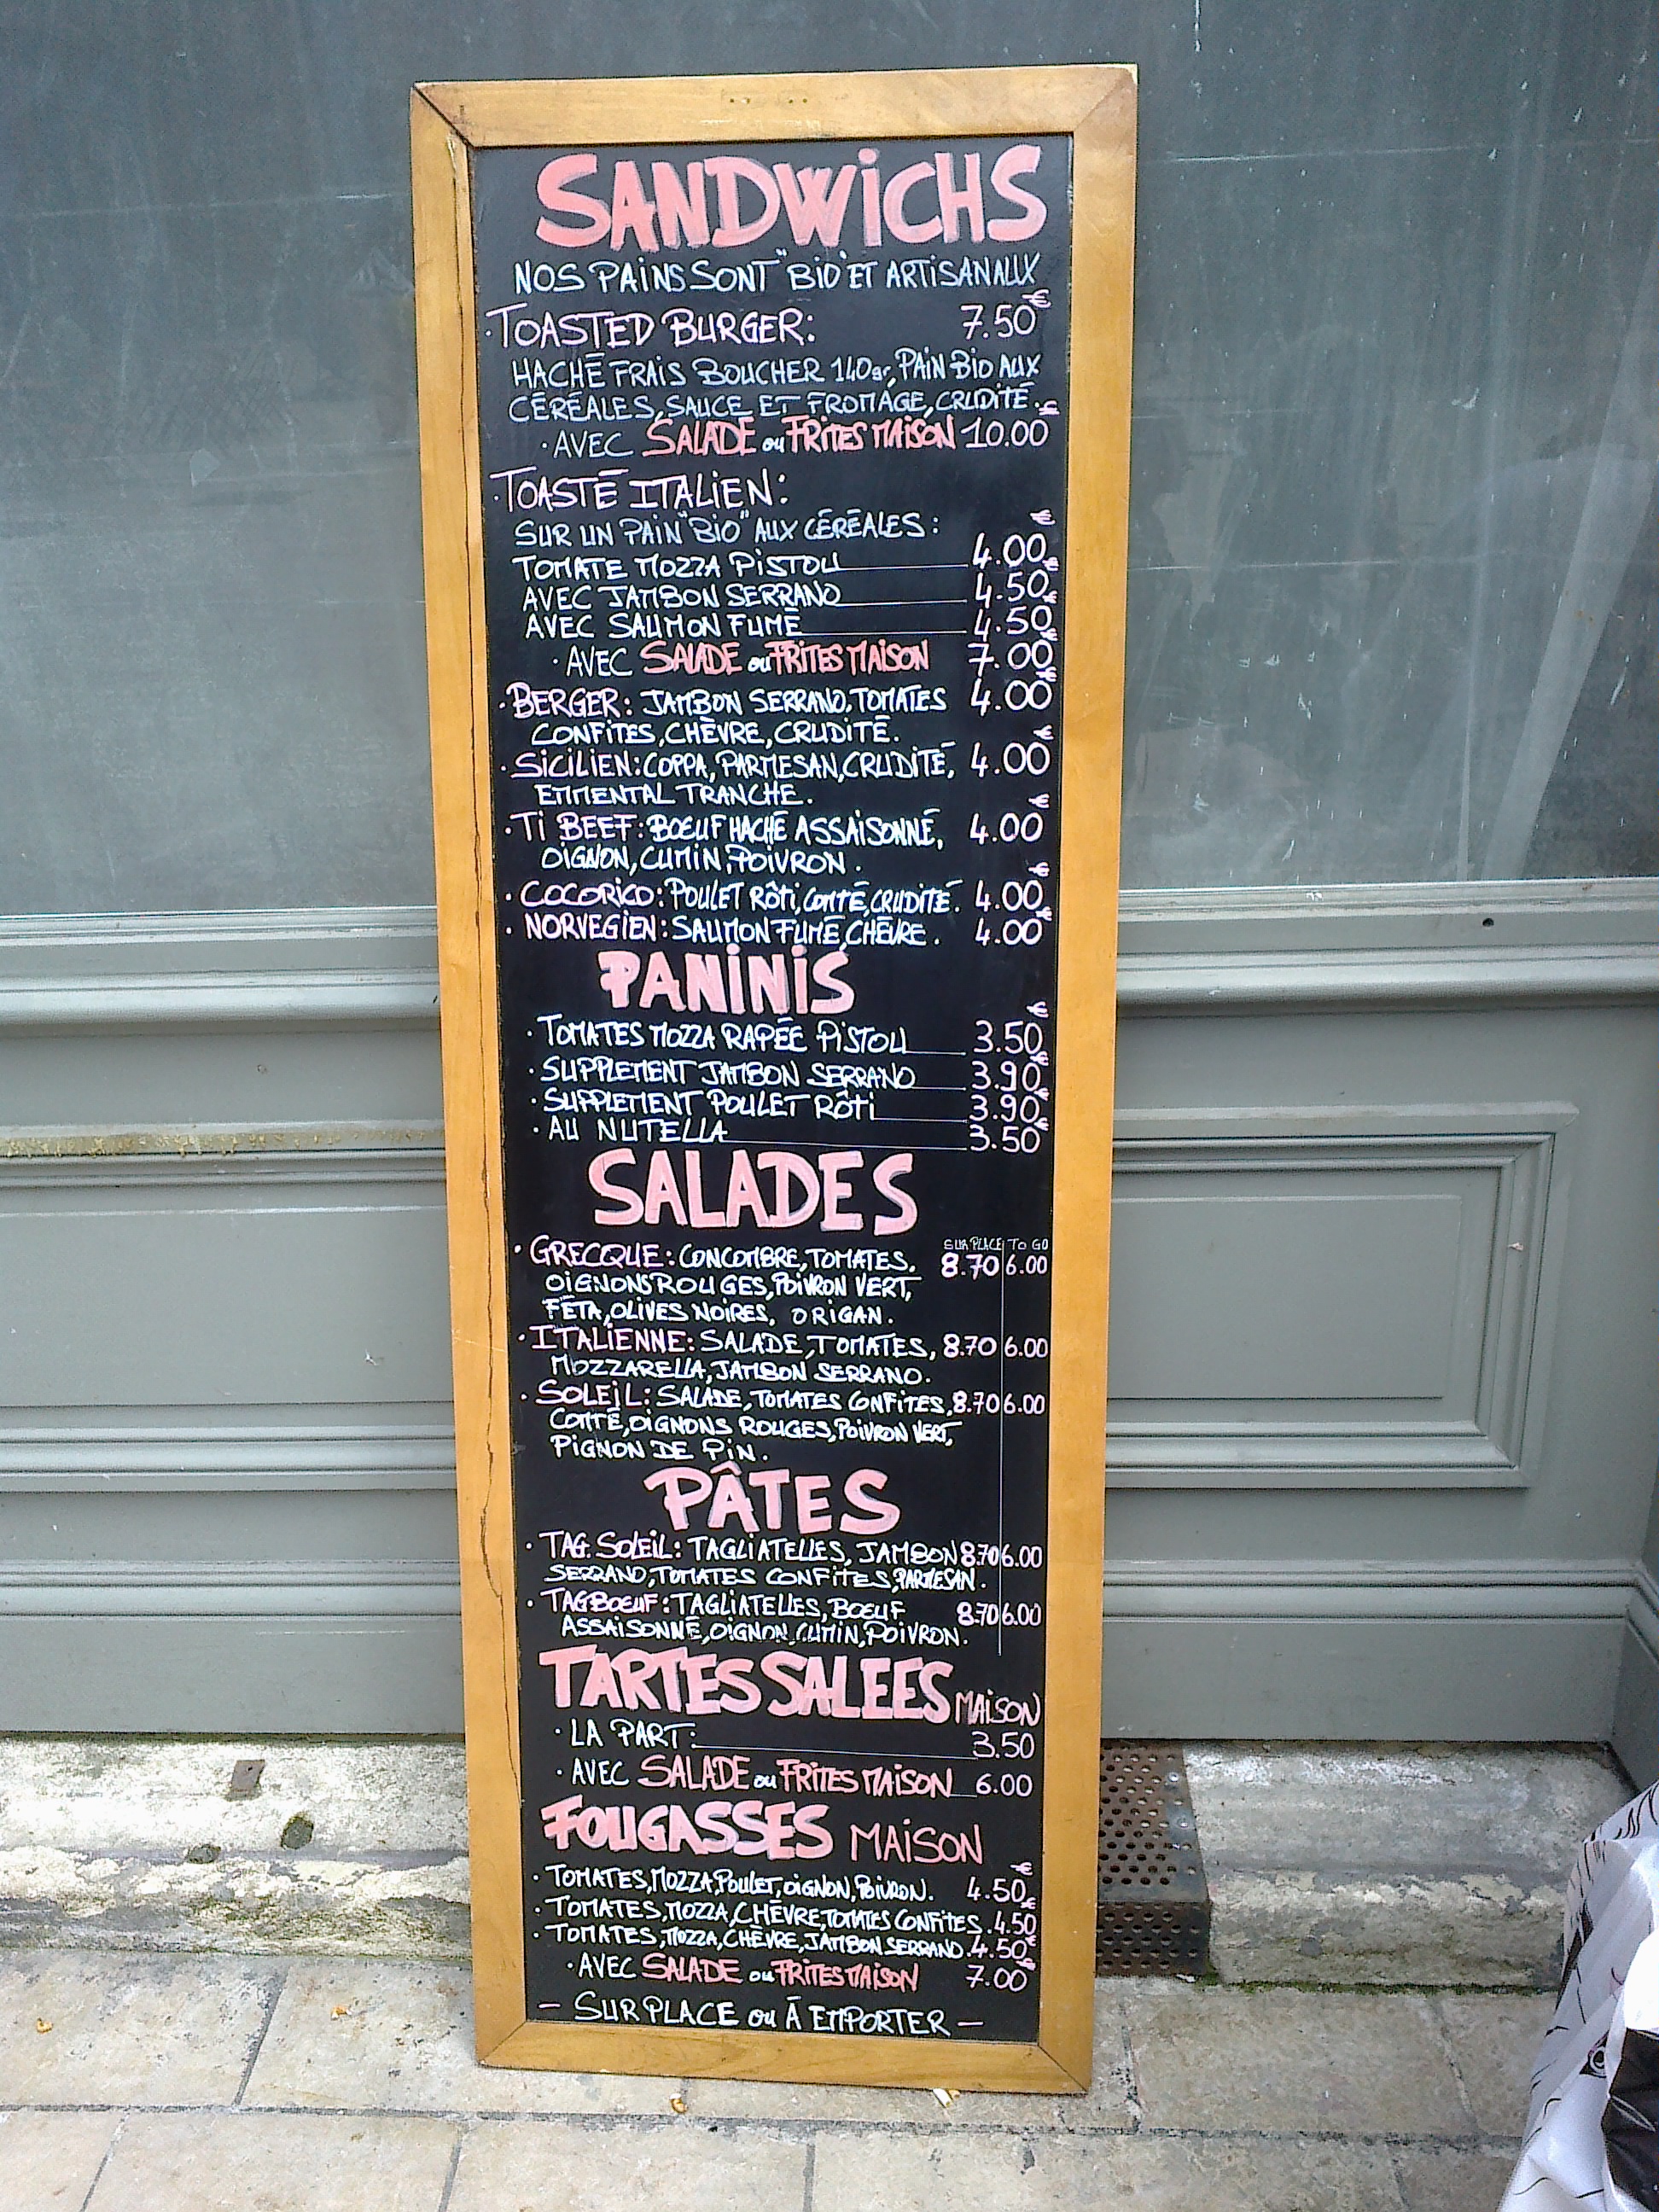 SANDWiCHS
NOS PAiNS SONT "BiO" ET ARTiSANAUX
·TOASTED BURGER: 7.50€
HACHÉ FRAiS BOUCHER 140gr, PAiN BiO AUX
CÉRÉALES, SAUCE ET FROMAGE, CRUDiTÉ.
·AVEC SALADE ou FRiTES MAiSON 10.00€
·TOASTÉ ITALiEN:
SUR UN PAiN "BiO" AUX CÉRÉALES:
TOMATE MOZZA PiSTOU 4.00€
AVEC JAMBON SERRANO 4.50€
AVEC SAUMON FUMÉ 4.50€
·AVEC SALADE ou FRiTES MAiSON 7.00€
·BERGER: JAMBON SERRANO, TOMATES 4.00€
CONFiTES, CHÈVRE, CRUDiTÉ.
·SiCiLiEN: COPPA, PARMESAN, CRUDiTÉ, 4.00€
EMMENTAL TRANCHE.
·Ti BEEF: BOEUF HACHÉ ASSAiSONNÉ, 4.00€
OiGNON, CUMiN, POiVRON.
·COCORiCO: POULET RÔTi, COMTÉ, CRUDiTÉ. 4.00€
·NORVEGiEN: SAUMON FUMÉ, CHÉVRE. 4.00€
PANiNiS
·TOMATES MOZZA RAPÉE PiSTOU 3.50€
·SUPPLEMENT JAMBON SERRANO 3.90€
·SUPPLEMENT POULET RÔTi 3.90€
·AU NUTELLA 3.50€
SALADES
SUR PLACE TO GO
·GRECQUE: CONCOMBRE, TOMATES, 8.70 6.00
OiGNONS ROUGES, POiVRON VERT,
FÉTA, OLiVES NOiRES, ORiGAN.
·ITALiENNE: SALADE, TOMATES, 8.70 6.00
MOZZARELLA, JAMBON SERRANO.
·SOLEiL: SALADE, TOMATES CONFiTES, 8.70 6.00
COMTÉ, OiGNONS ROUGES, POiVRON VERT,
PiGNON DE PiN.
PÂTES
·TAG. SOLEiL: TAGLiATELLES, JAMBON 8.70 6.00
SERRANO, TOMATES CONFiTES, PARMESAN.
·TAG BOEUF: TAGLiATELLES, BOEUF 8.70 6.00
ASSAiSONNÉ, OiGNON, CUMiN, POiVRON.
TARTES SALEES MAiSON
·LA PART: 3.50
·AVEC SALADE ou FRiTES MAiSON 6.00
FOUGASSES MAiSON
·TOMATES, MOZZA, POULET, OiGNON, POiVRON. 4.50€
·TOMATES, MOZZA, CHÉVRE, TOMATES CONFiTES. 4.50€
·TOMATES, MOZZA, CHÉVRE, JAMBON SERRANO. 4.50€
·AVEC SALADE ou FRiTES MAiSON 7.00€
- SUR PLACE ou À EMPORTER -